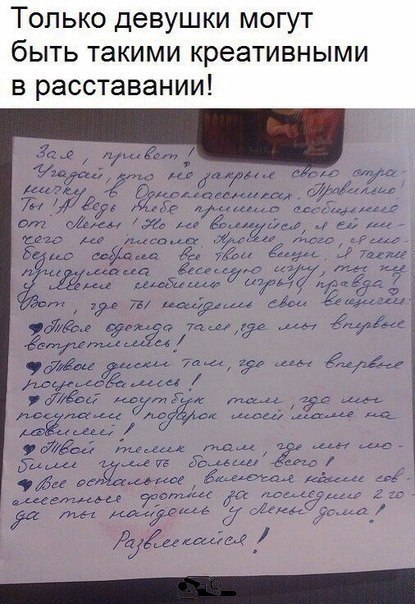 Только девушки могут
быть такими креативными
в расставании!
Зая, привет!
Угадай, кто не закрыл свою стра-
ничку в Одноклассниках. Правильно!
Ты! А ведь тебе пришло сообщение
от Лены! Но не волнуйся, я ей ни-
чего не писала. Кроме того, я лю-
безно собрала все твои вещи. Я также
придумала веселую игру, ты же
у меня любишь игры, правда?
Вот, где ты найдешь свои вещички:
♥Твоя одежда там, где мы впервые
встретились!
♥Твои диски там, где мы впервые
поцеловались!
♥Твой ноутбук там, где мы
покупали подарок моей маме на
♥Твой телик там, где мы лю-
били гулять больше всего!
♥Все остальное, включая наши сов-
местные фотки за последние 2 го-
да ты найдешь у Лены дома!
Развлекайся!